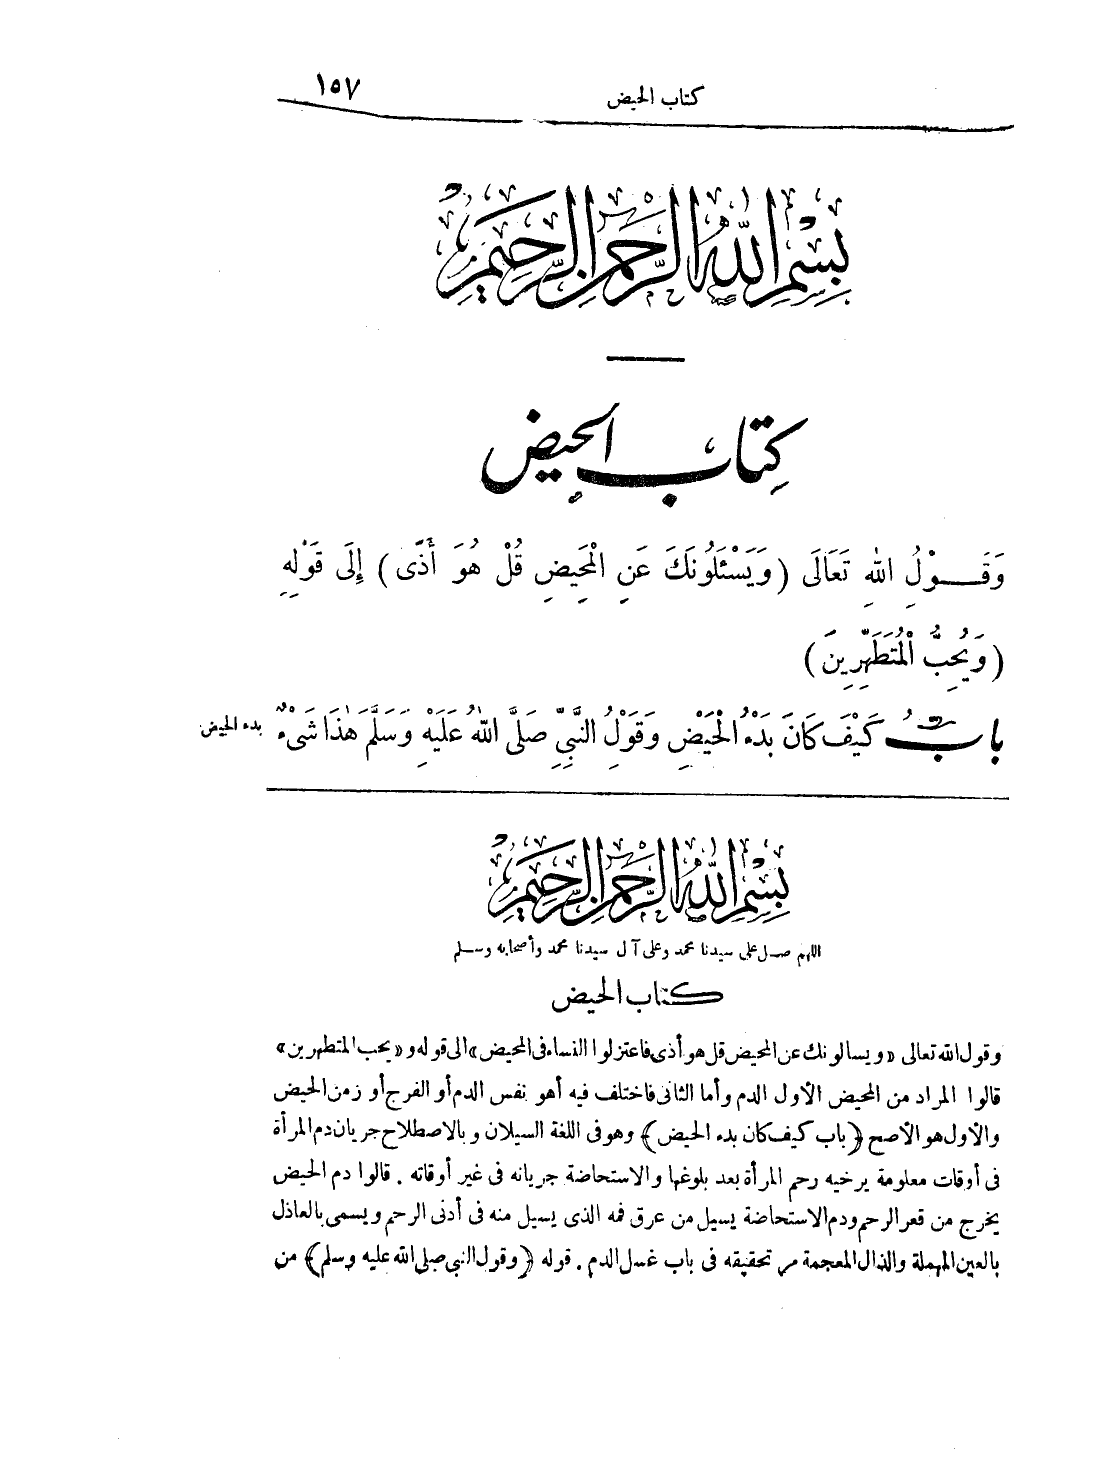 كتاب الحيض ١٥٧
بِسْمِ اللهِ الرَّحْمنِ الرَّحِيمِ
كِتَابُ الحيض
وَقَـــوْلُ اللهِ تَعَالَى (وَيَسْئَلُونَكَ عَنِ الْمَحِيضِ قُلْ هُوَ أَذًى) إِلَى قَوْلِهِ
(وَيُحِبُّ الْمُتَطَهِّرِينَ)
بابُ كَيْفَ كَانَ بَدْءُ الْحَيْضِ وَقَوْلُ النَّبِيِّ صَلَّى اللهُ عَلَيْهِ وَسَلَّمَ هٰذَا شَىْءٌ
بدء الحيض
بِسْمِ اللهِ الرَّحْمنِ الرَّحِيمِ
اللهم صل على سيدنا محمد وعلى آل سيدنا محمد وأصحابه وسلم
كتاب الحيض
وقول الله تعالى «ويسألونك عن المحيض قل هو أذى فاعتزلوا النساء فى المحيض» الى قوله و «يحب المتطهرين»
قالوا المراد من المحيض الأول الدم وأما الثانى فاختلف فيه أهو نفس الدم أو الفرج أو زمن الحيض
والأول هو الأصح ﴿باب كيف كان بدء الحيض﴾ وهو فى اللغة السيلان وبالاصطلاح جريان دم المرأة
فى أوقات معلومة يرخيه رحم المرأة بعد بلوغها والاستحاضة جريانه فى غير أوقاته . قالوا دم الحيض
يخرج من قعر الرحم ودم الاستحاضة يسيل من عرق فمه الذى يسيل منه فى أدنى الرحم ويسمى بالعاذل
بالعين المهملة والذال المعجمة مر تحقيقه فى باب غسل الدم . قوله ﴿وقول النبى صلى الله عليه وسلم﴾ من